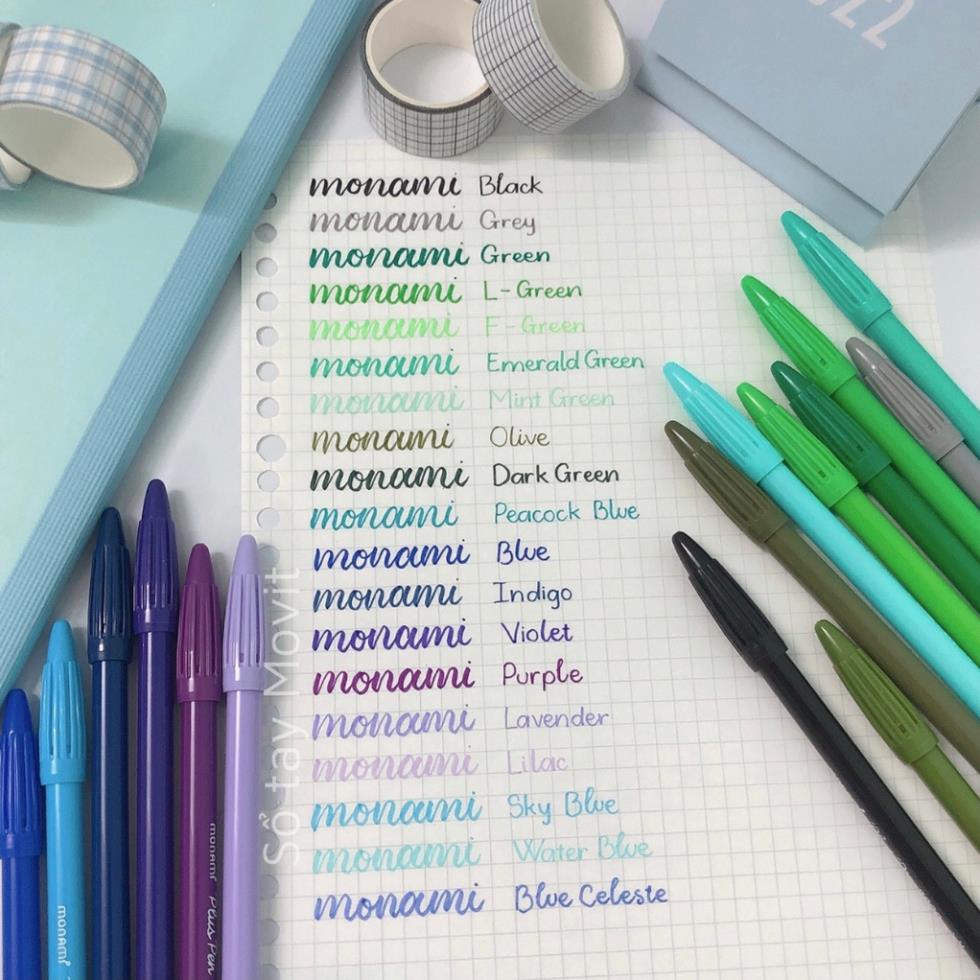 monami Black
monami Grey
monami Green
monami L-Green
monami F-Green
monami Emerald Green
monami Mint Green
monami Olive
monami Dark Green
monami Peacock Blue
monami Blue
monami Indigo
monami Violet
monami Purple
monami Lavender
monami Lilac
monami Sky Blue
monami Water Blue
monami Blue Celeste
Sổ tay Movit
monami
monami Plus Pen